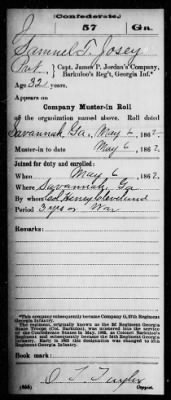 (Confederate.)
57 Ga.
Samuel T. Josey
Pvt., Capt. James P. Jordan's Company,
Barkuloo's Reg't, Georgia Inf.*
Age 32 years.
Appears on
Company Muster-in Roll
of the organization named above. Roll dated
Savannah, Ga., May 6, 1862.
Muster-in to date May 6, 1862.
Joined for duty and enrolled:
When May 6, 1862.
Where Savannah, Ga
By whom Col. Henry Cleveland
Period 3 yrs or War
Remarks:
*This company subsequently became Company 57th Regiment
Georgia Infantry.
Book mark:
Copyist.